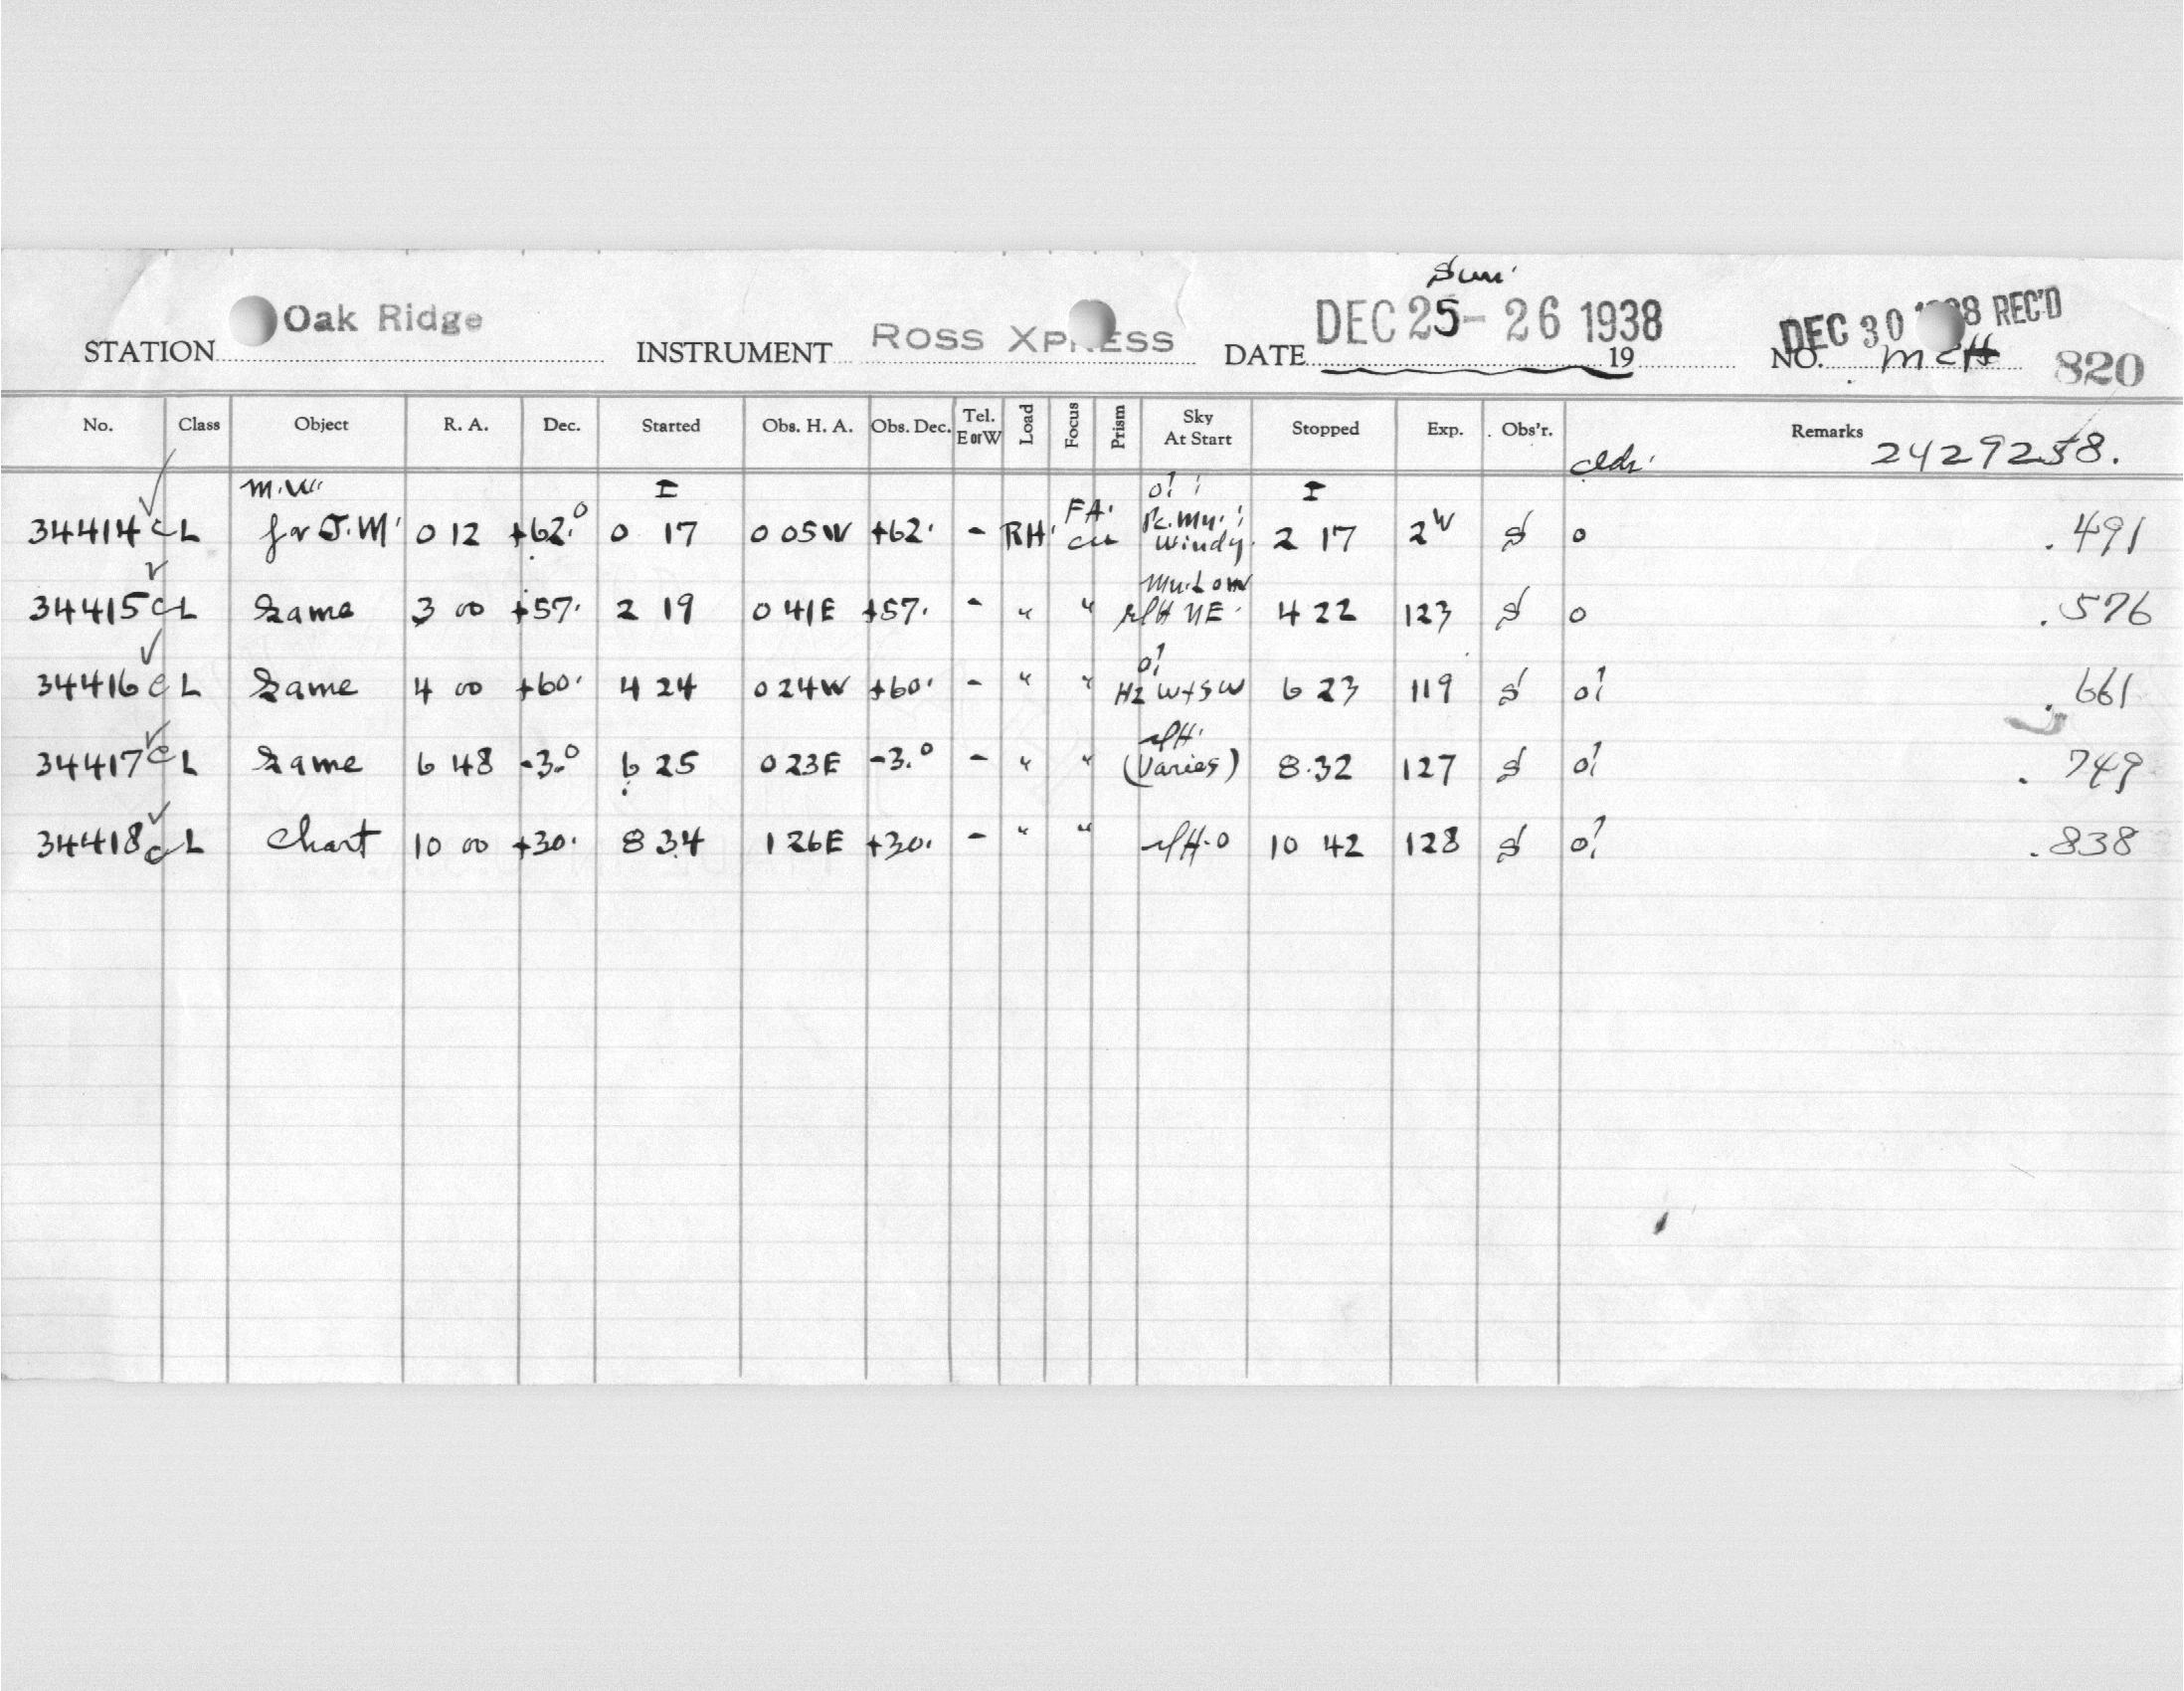 Sun.
STATION Oak Ridge INSTRUMENT ROSS XPRESS DATE DEC 25-26 1938 19 NO. DEC 30 REC'D 820
No. Class Object R. A. Dec. Started Obs. H. A. Obs. Dec. Tel. E or W Load Focus Prism Sky At Start Stopped Exp. Obs'r. Remarks 2429258.
M.W. I o! I
34414 c L for J.M. 0 12 +62.° 0 17 0 05W +62. - RH. FA. Windy. 2 17 2 S o .491
34415 c L Same 3 00 +57. 2 19 0 41E +57. - " " NE. 4 22 123 S o .576
34416 c L Same 4 00 +60. 4 24 0 24W +60. - " " o! Hz W+SW 6 23 119 S o! .661
34417 c L Same 6 48 -3.° 6 25 0 23E -3.° - " " (Varies) 8.32 127 S o! .749
34418 c L Chart 10 00 +30. 8 34 1 26E +30. - " " 10 42 128 S o! .838